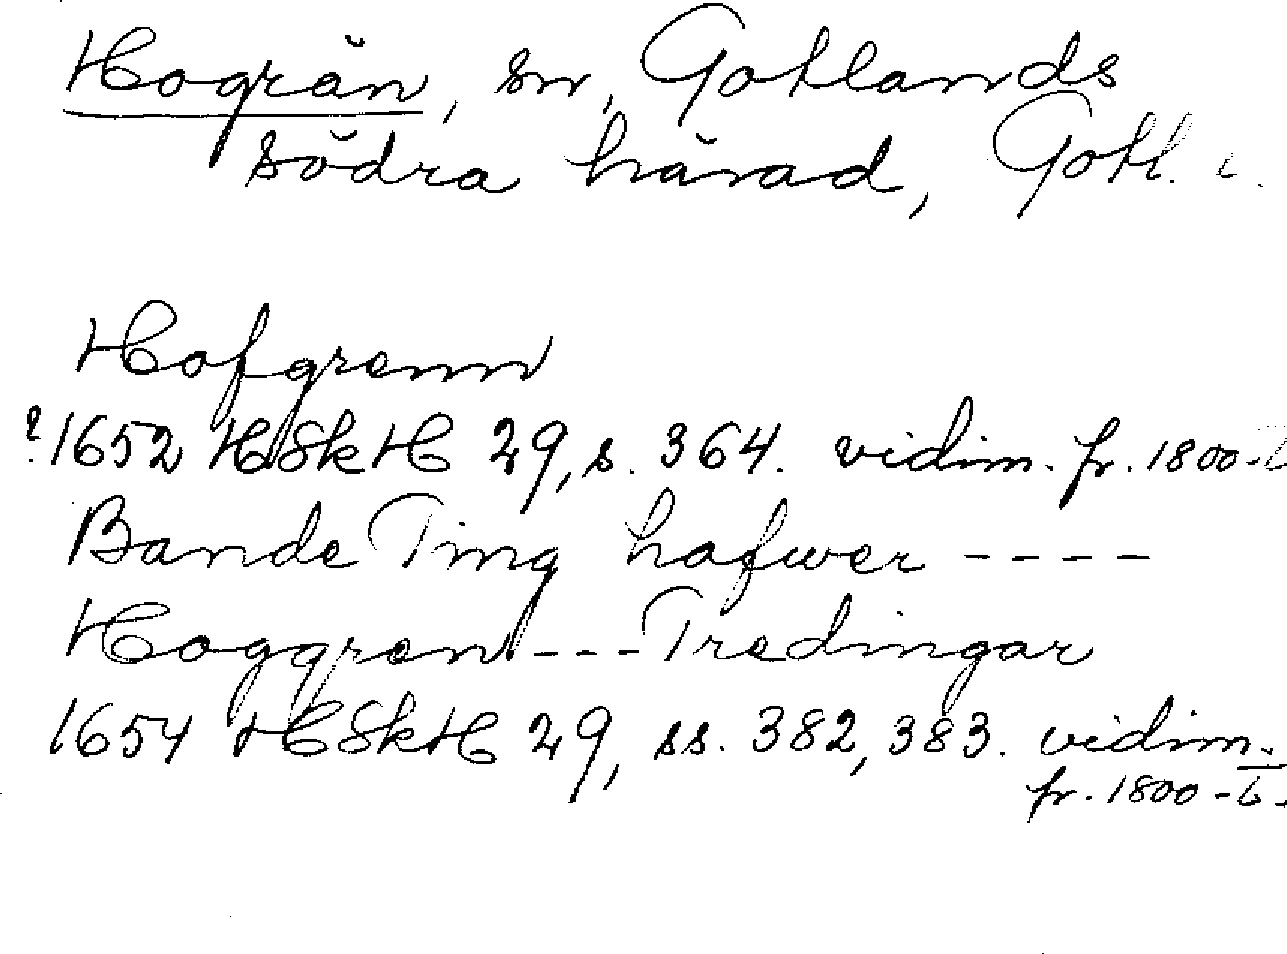 Hogrän, sn, Gotlands
södra härad, Gotl. l.
Hofgrenn
?1652 HSkH 29, s. 364. vidim. fr. 1800-t
Bande Ting hafwer ----
Hoggren --- Tredingar
1654 HSkH 29, ss. 382, 383. vidim.
fr. 1800-t.